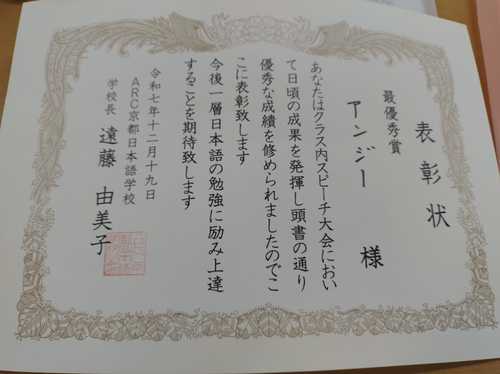 表彰状
最優秀賞
アンジー 様
あなたはクラス内スピーチ大会におい
て日頃の成果を発揮し頭書の通り
優秀な成績を修められましたのでこ
こに表彰致します
今後一層日本語の勉強に励み上達
することを期待致します
令和七年十二月十九日
ARC京都日本語学校
学校長 遠藤 由美子